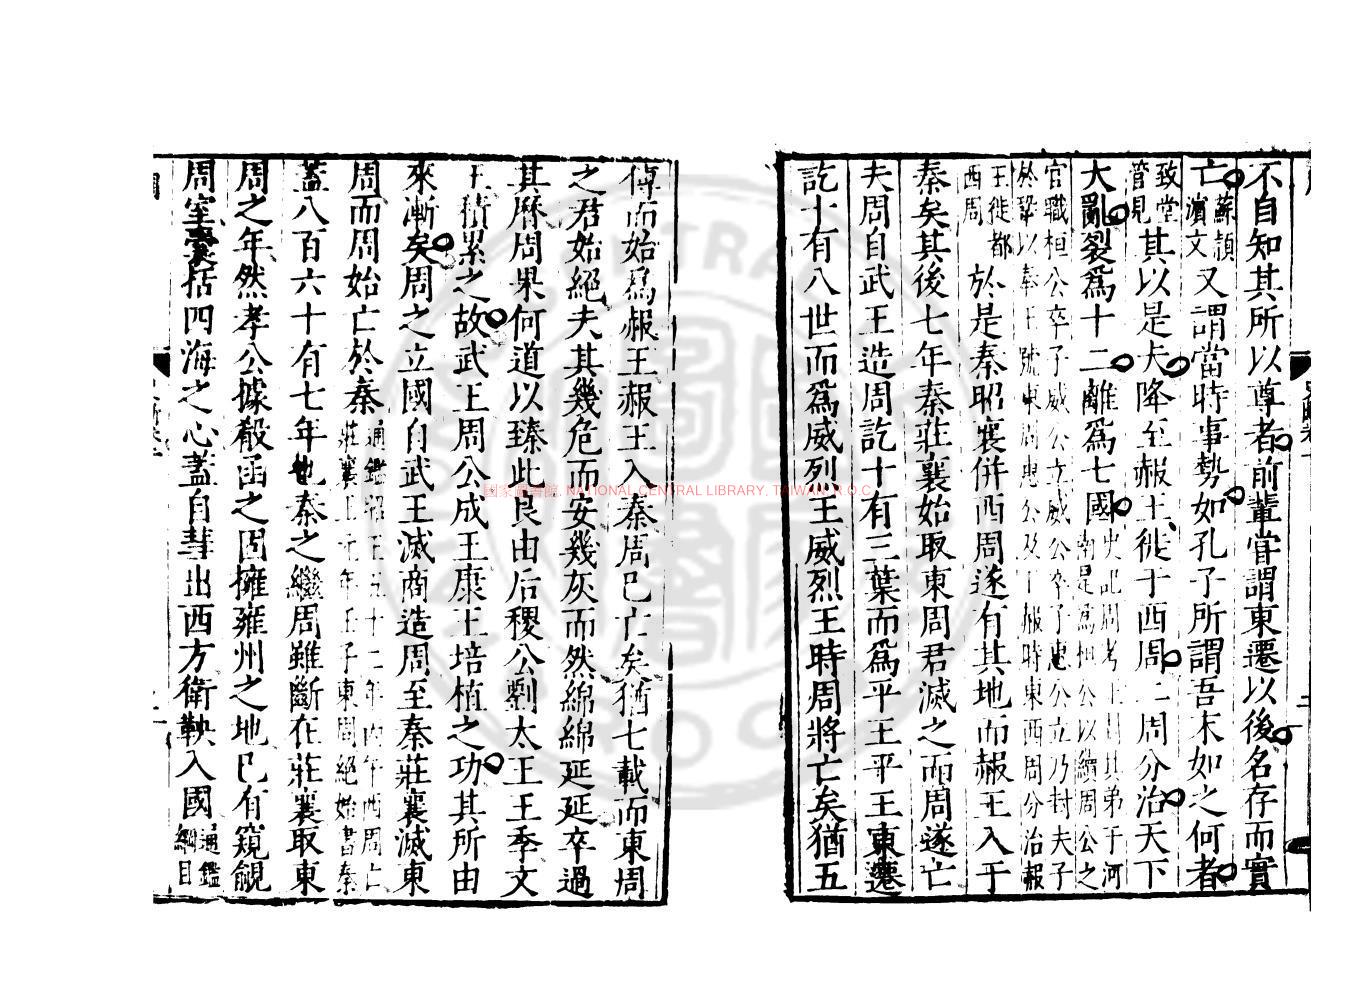 不自知其所以尊者前輩嘗謂東遷以後名存而實
亡蘇潁濱文又謂當時事勢如孔子所謂吾末如之何者
致堂管見其以是夫降至赧王徙于西周二周分治天下
大亂裂為十二離為七國史記周考王封其弟于河南是為桓公以續周公之
官職桓公卒子威公立威公卒子惠公立乃封夫子
於鞏以奉王號東周惠公及于赧時東西周分治赧
王徙都西周於是秦昭襄併西周遂有其地而赧王入于
秦矣其後七年秦莊襄始取東周君滅之而周遂亡
夫周自武王造周訖十有三葉而為平王平王東遷
訖十有八世而為威烈王威烈王時周將亡矣猶五
傳而始為赧王赧王入秦周已亡矣猶七載而東周
之君始絕夫其幾危而安幾灰而然綿綿延延卒過
其曆周果何道以臻此良由后稷公劉太王王季文
王積累之故武王周公成王康王培植之功其所由
來漸矣周之立國自武王滅商造周至秦莊襄滅東
周而周始亡於秦通鑑昭王五十二年丙午西周亡莊襄王元年壬子東周絕始書秦
蓋八百六十有七年也秦之繼周雖斷在莊襄取東
周之年然孝公據殽函之固擁雍州之地已有窺覦
周室囊括四海之心蓋自彗出西方衛鞅入國通鑑綱目
國家圖書館, NATIONAL CENTRAL LIBRARY, TAIWAN, R.O.C.